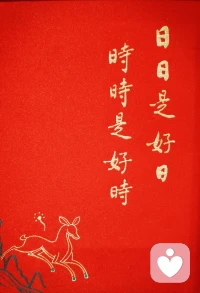 日日是好日
時時是好時